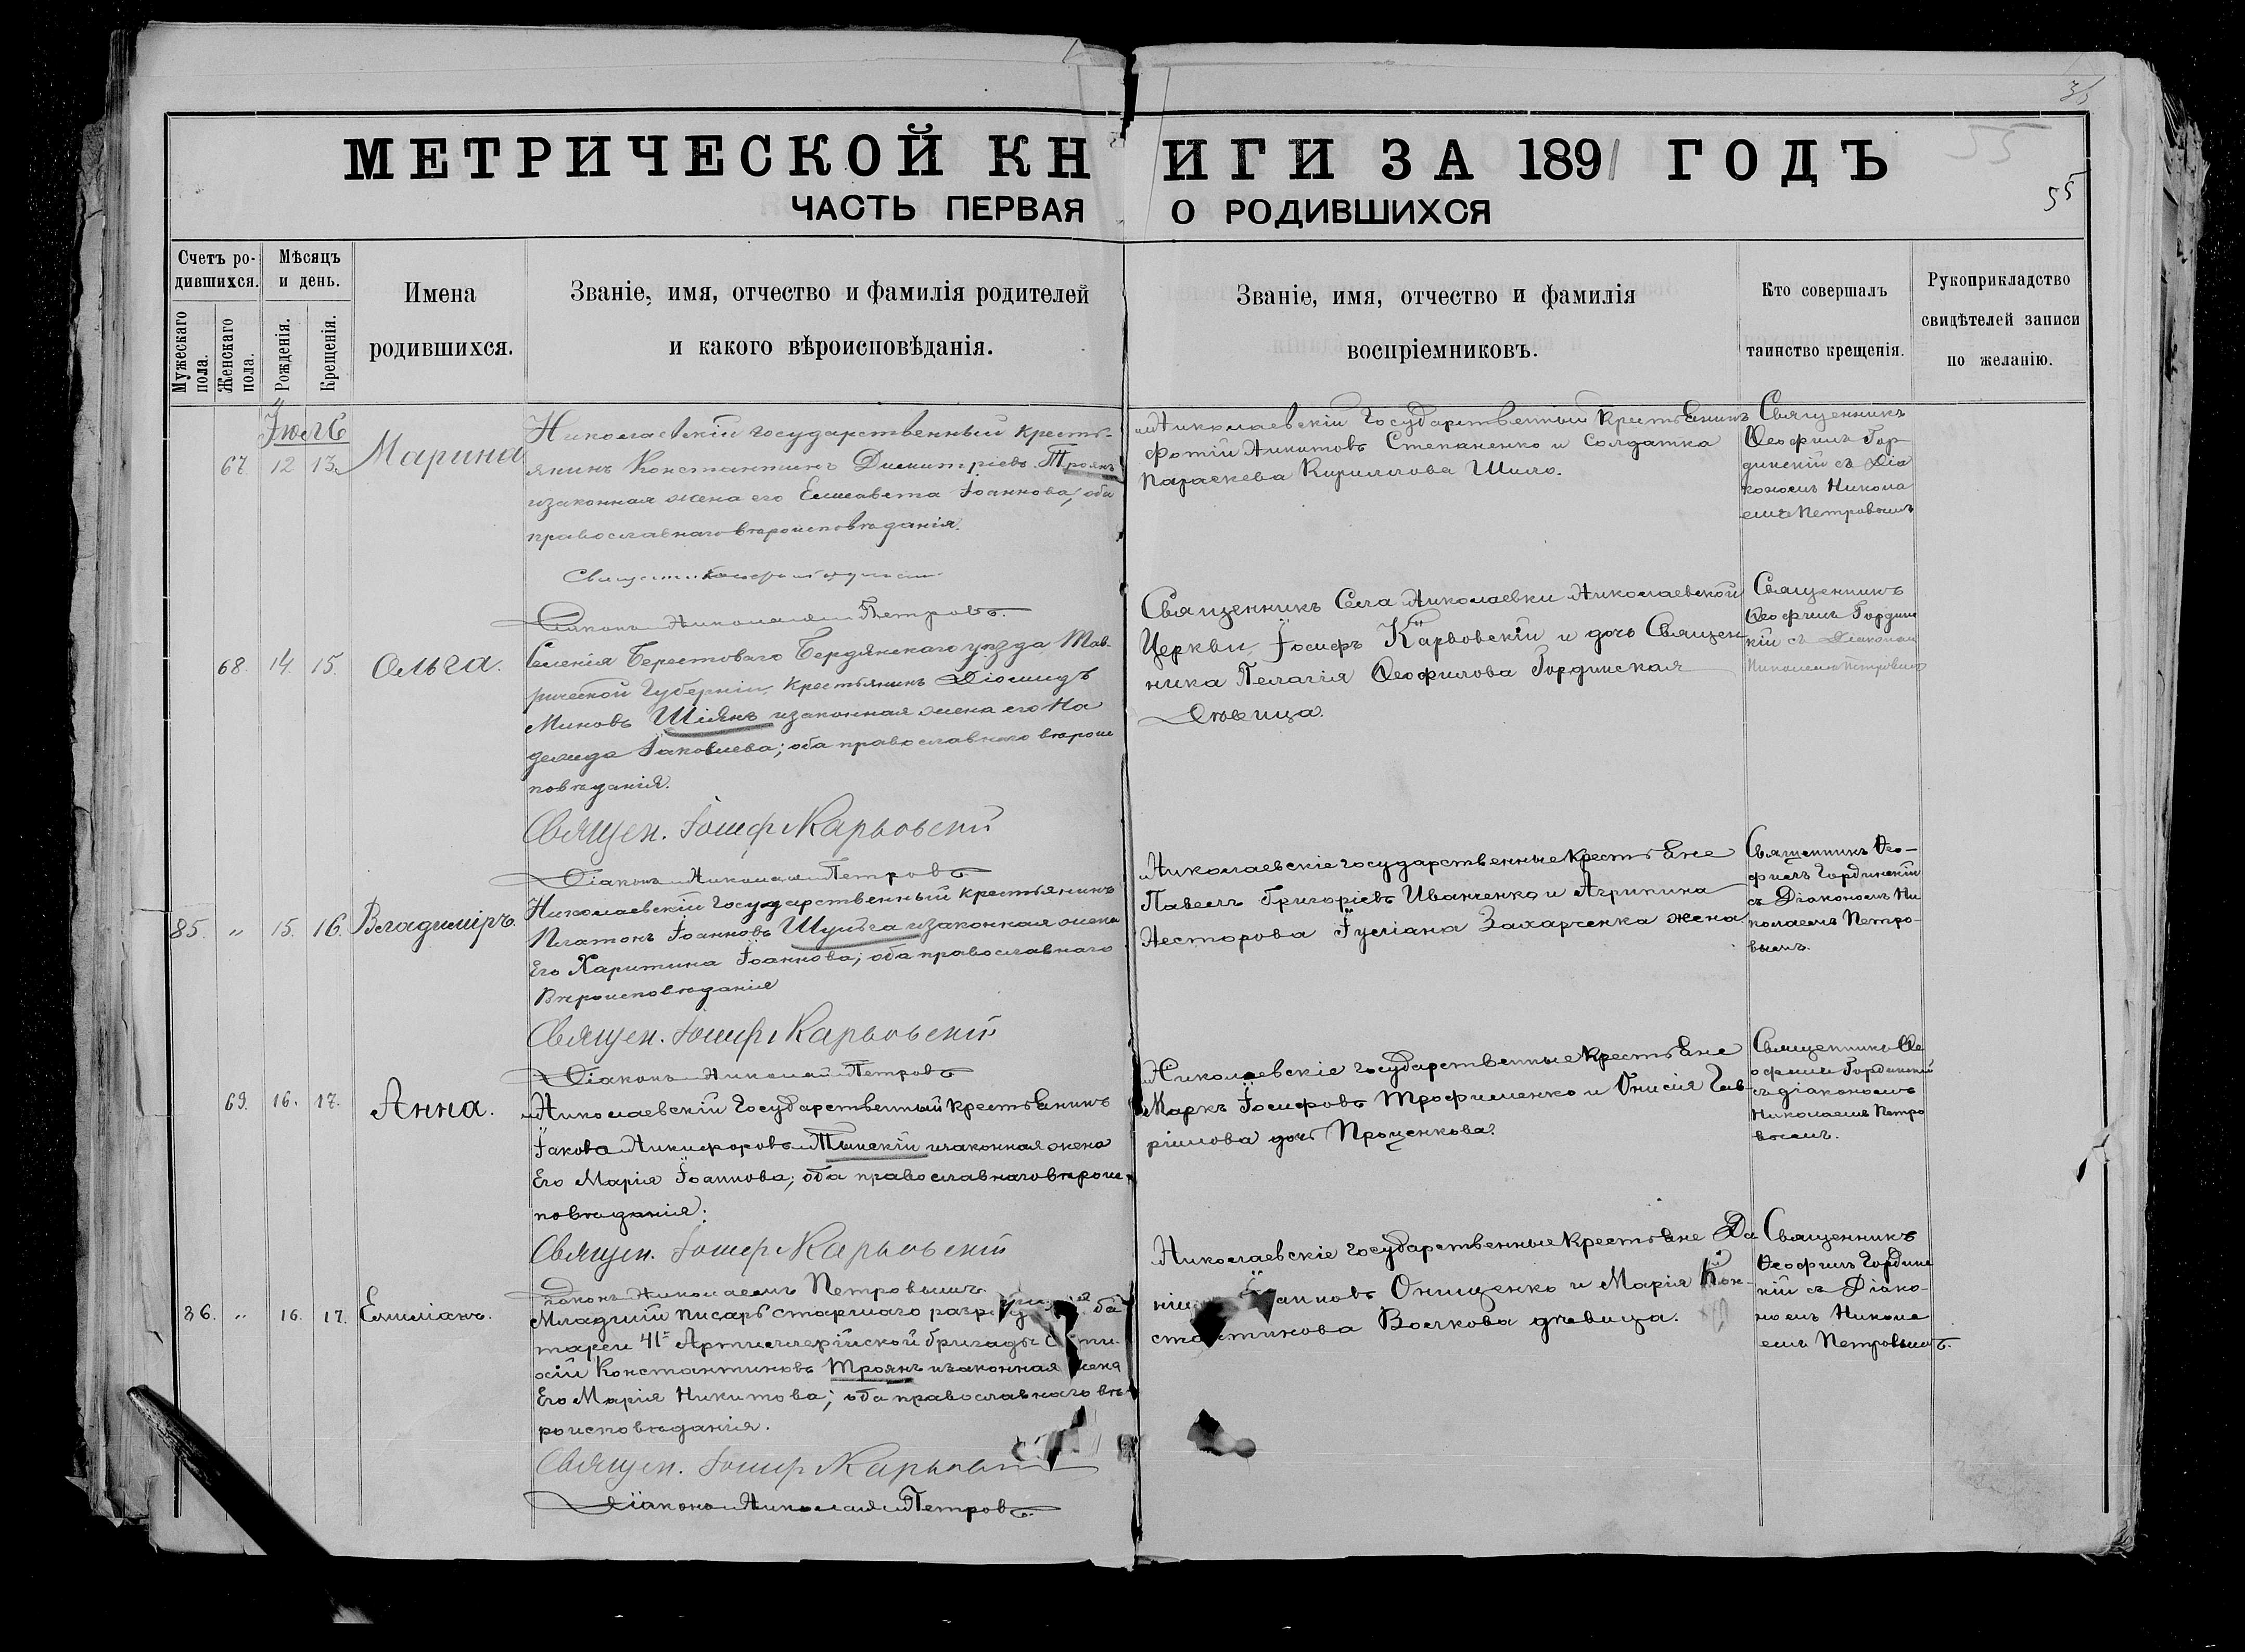 35
МЕТРИЧЕСКОЙ КНИГИ ЗА 1891 ГОДЪ
55
55
ЧАСТЬ ПЕРВАЯ О РОДИВШИХСЯ
Счетъ родившихся.
Мужескаго пола.
Женскаго пола.
Мѣсяцъ и день.
Рожденія.
Крещенія.
Имена родившихся.
Званіе, имя, отчество и фамилія родителей
и какого вѣроисповѣданія.
Званіе, имя, отчество и фамилія
воспріемниковъ.
Кто совершалъ
таинство крещенія.
Рукоприкладство
свидѣтелей записи
по желанію.
67. 12 13. Марина
Николаевскій государственный кресть-
янинъ Константинъ Димитріевъ Троянъ
и законная жена его Елисавета Іоаннова, оба
православнаго вѣроисповѣданія.
Николаевскій Государственный крестьянинъ
Фотій Никитовъ Степаненко и солдатка
Параскева Кириллова Шило.
Священникъ
Ѳеофилъ Гор-
динскій съ Діа
кономъ Никола
емъ Петровымъ
Діаконъ Николай Петровъ.
68. 14. 15. Ольга.
Селенія Берестоваго Бердянскаго уѣзда, Тав-
рической Губерніи, крестьянинъ Діомидъ
Миновъ Шіянъ и законная жена его На
дежда Іаковлева; оба православнаго вѣроис
повѣданія.
Священ. Іосиф Карвовскій
Діаконъ Николай Петровъ
Священникъ Села Николаевки Николаевской
Церкви, Іосифъ Карвовскій и дочь Священ
ника Пелагія Ѳеофилова Гординская
Дѣвица.
Священникъ
Ѳеофилъ Гординс
кій съ Діакономъ
Николаемъ Петровымъ
85. " 15. 16. Владиміръ.
Николаевскій Государственный крестьянинъ
Платонъ Іоанновъ Шульга и законная жена
Его Харитина Іоаннова; оба православнаго
Вѣроисповѣданія
Священ. Іосиф Карвовскій
Діаконъ Николай Петровъ
Николаевскіе государственные крестьяне
Павелъ Григоріевъ Иванченко и Агрипина
Несторова Іуліана Захарченка жена
Священникъ Ѳео-
филъ Гординскій
съ Діакономъ Ни
колаемъ Петро-
вымъ.
69. 16. 17. Анна.
Николаевскій Государственный крестьянинъ
Іаковъ Никифоровъ и законная жена
Его Марія Іоаннова; оба православнаго вѣроис
повѣданія.
Священ. Іосиф Карвовскій
Діаконъ Николаемъ Петровымъ
Николаевскіе государственные крестьяне
Маркъ Іосифовъ Трофименко и Онисія Гав-
ріилова дочь Проценкова.
Священникъ Ѳе
офилъ Гординскій
съ діакономъ
Николаемъ Петро
вымъ.
86. " 16. 17. Емиліанъ.
Младшій писарь старшаго ба
тареи 41й Артиллерійской бригады
Константиновъ Троянъ и законная жена
Его Марія Никитова; оба православнаго вѣ-
роисповѣданія.
Священ. Іосиф Карвовскій
Діаконъ Николай Петровъ.
Николаевскіе государственные крестьяне Да
Онищенко и Марія Кон-
стантинова Волкова дѣвица.
Священникъ
Ѳеофилъ Гординс
кій съ Діако-
номъ Никола
емъ Петровымъ.